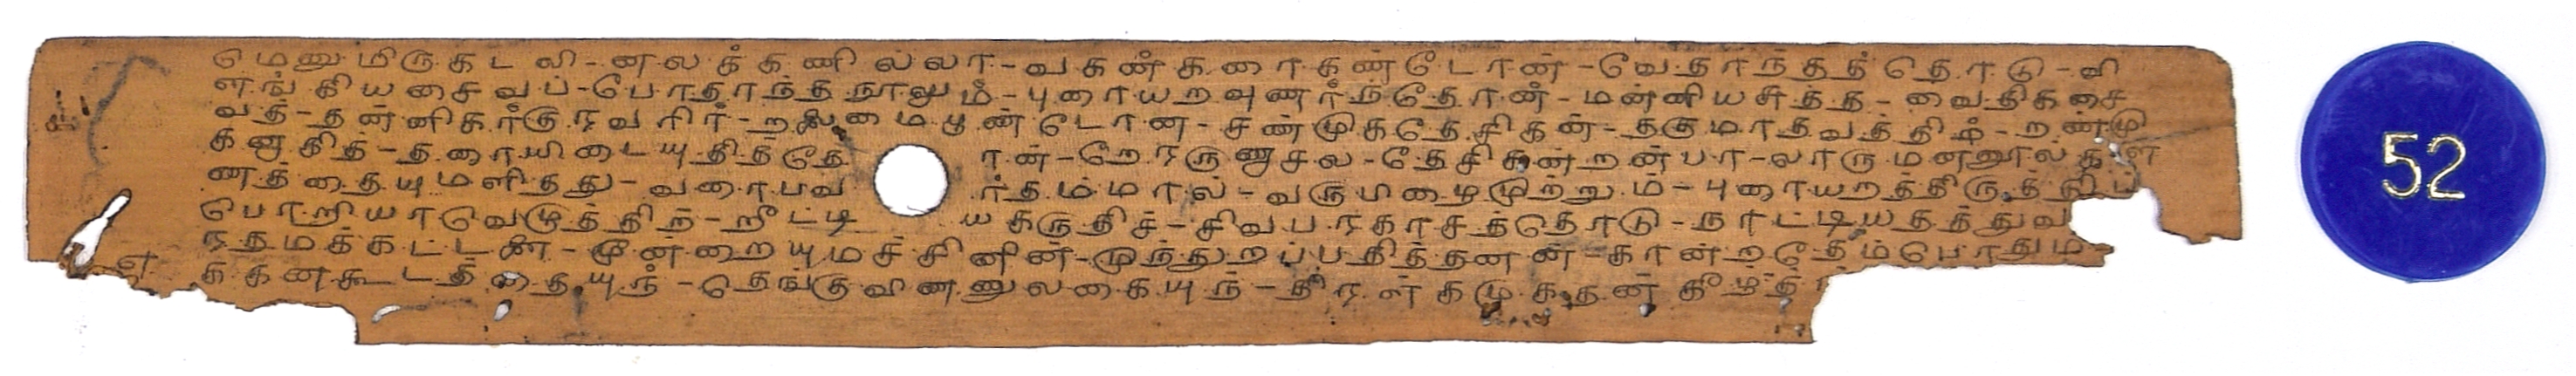 மெனுமிருகடலி-னலக்கணில்லா-வகண்கரைகண்டோன்-வேதாந்தத்தொடு-வி
ளங்கியசைவப்-போதாந்தநூலும்-புரையறவுணர்ந்தோன்-மன்னியசுத்த-வைதிகசை
வத்-தன்னிகர்குரவரிர்-றலைமைபூண்டோன-சண்முகதேசிகன்-தகுமாதவத்திற்-றண்மு
கனுதித்-தரையிடையுதித்தே ரன்-றேரருணுசல-தேசிகன்றன்பா-லாருமனனூல்கள
ணத்தையுமளித்து-வரைபவ ர்தம்மால்-வருபிழைமுற்றும்-புரையறத்திருத்திப்
பொறியாவெழுத்திற்-றீட்டி யசுருதிச்-சிவபரகாசத்தொடு-நாட்டியதத்துவ
ரதமக்கட்டளை-மூன்றையுமச்சினின்-முந்துறப்பதித்தனன்-கான்றதேம்போதும
கனகூடத்தையுந்-தெங்குவிணணுலகையுந்-தீரள்கமுகதன் கீழ்த்
52